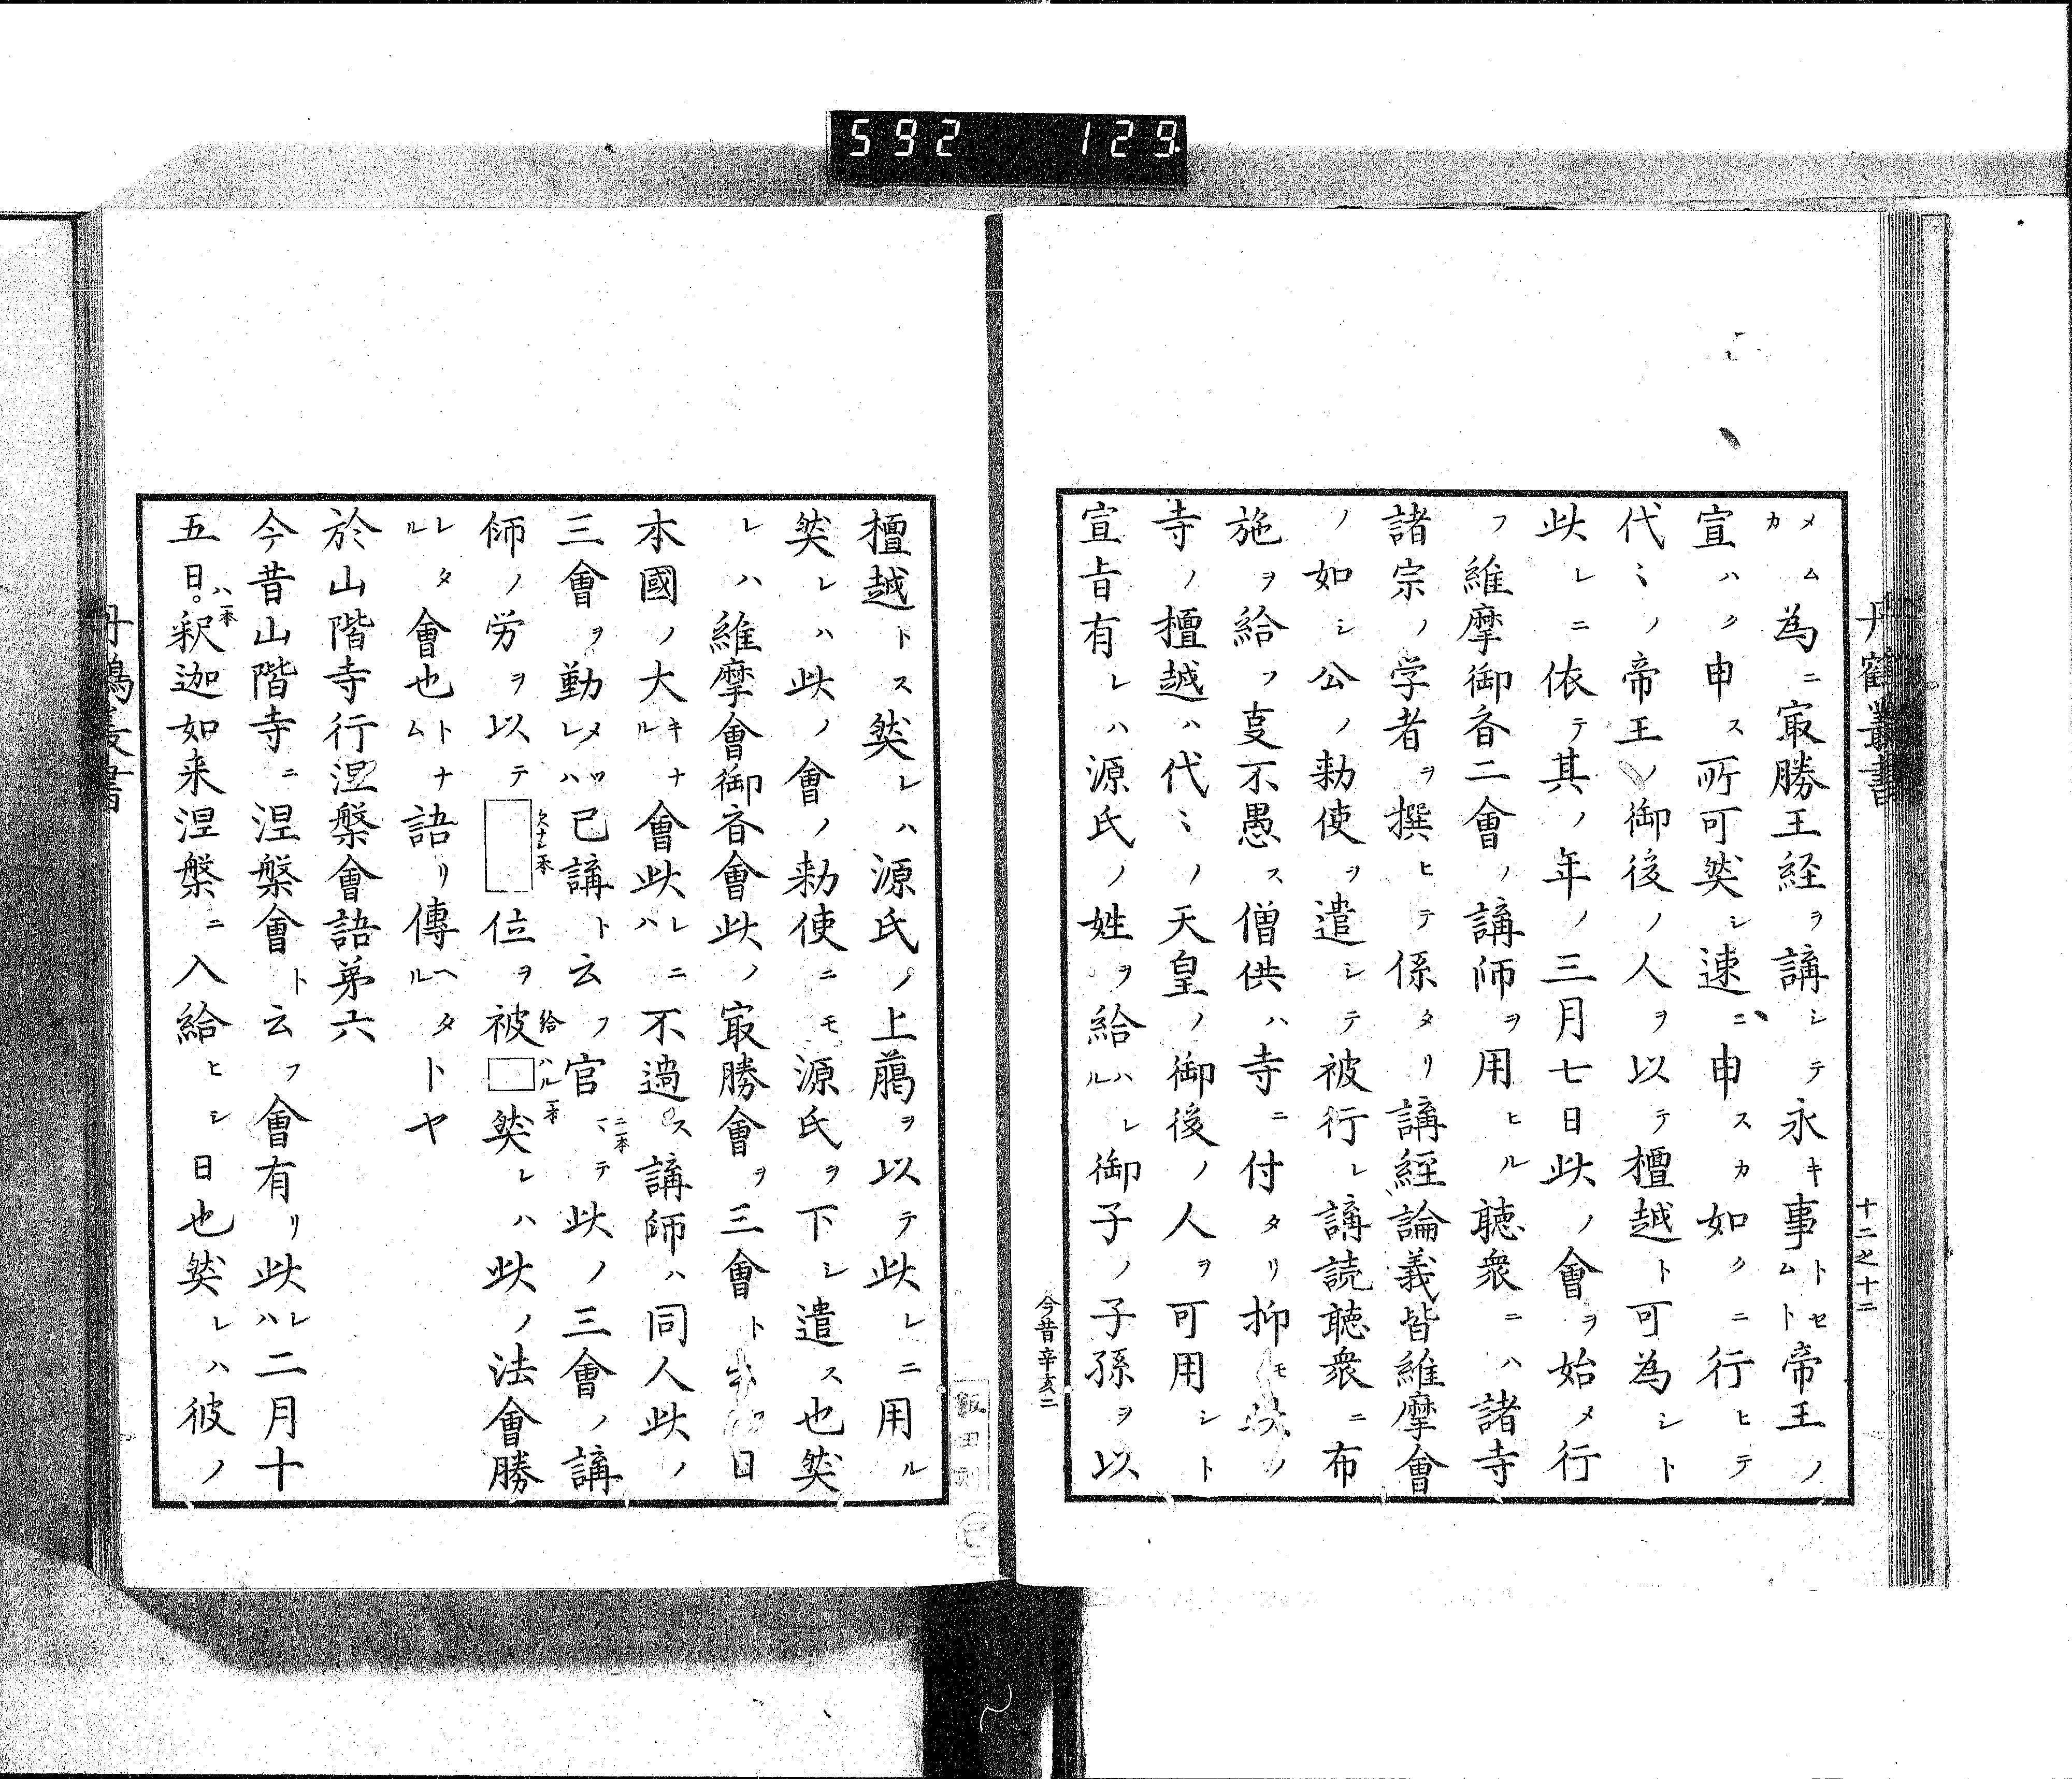 592 129
丹鶴叢書
十二之十二
メム為ニ㝡勝王経ヲ講シテ永キ事トセムト帝王ノ
カ
宣ハク申ス所可然シ速ニ申スカ如クニ行ヒテ
代〻ノ帝王ノ御後ノ人ヲ以テ檀越ト可為シト
此レニ依テ其ノ年ノ三月七日此ノ會ヲ始メ行
フ維摩御斎二會ノ講師ヲ用ヒル聴衆ニハ諸寺
諸宗ノ学者ヲ撰ヒテ係タリ講経論義皆維摩會
ノ如シ公ノ勅使ヲ遣シテ被行レ講読聴衆ニ布
施ヲ給フ叓不愚ス僧供ハ寺ニ付タリ抑モ此ノ
寺ノ檀越ハ代〻ノ天皇ノ御後ノ人ヲ可用シト
宣旨有レハ源氏ノ姓ヲ給ハレル御子ノ子孫ヲ以
今昔辛亥二
檀越トス然レハ源氏ノ上﨟ヲ以テ此レニ用ル
然レハ此ノ會ノ勅使ニモ源氏ヲ下シ遣ス也然
レハ維摩會御斎會此ノ㝡勝會ヲ三會ト云フ日
本國ノ大キナル會此レニハ不過ス講師ハ同人此ノ
三會ヲ勤メツレハ已講ト云フ官マテ此ノ三會ノ講
ニ一本
師ノ労ヲ以テ□位ヲ被□然レハ此ノ法會勝
給ハル一本
レタル會也トナム語リ傳ヘタルトヤ
於山階寺行涅槃會語第六
今昔山階寺ニ涅槃會ト云フ會有リ此レハ二月十
五日。釈迦如来涅槃ニ入給ヒシ日也然レハ彼ノ
ハ一本